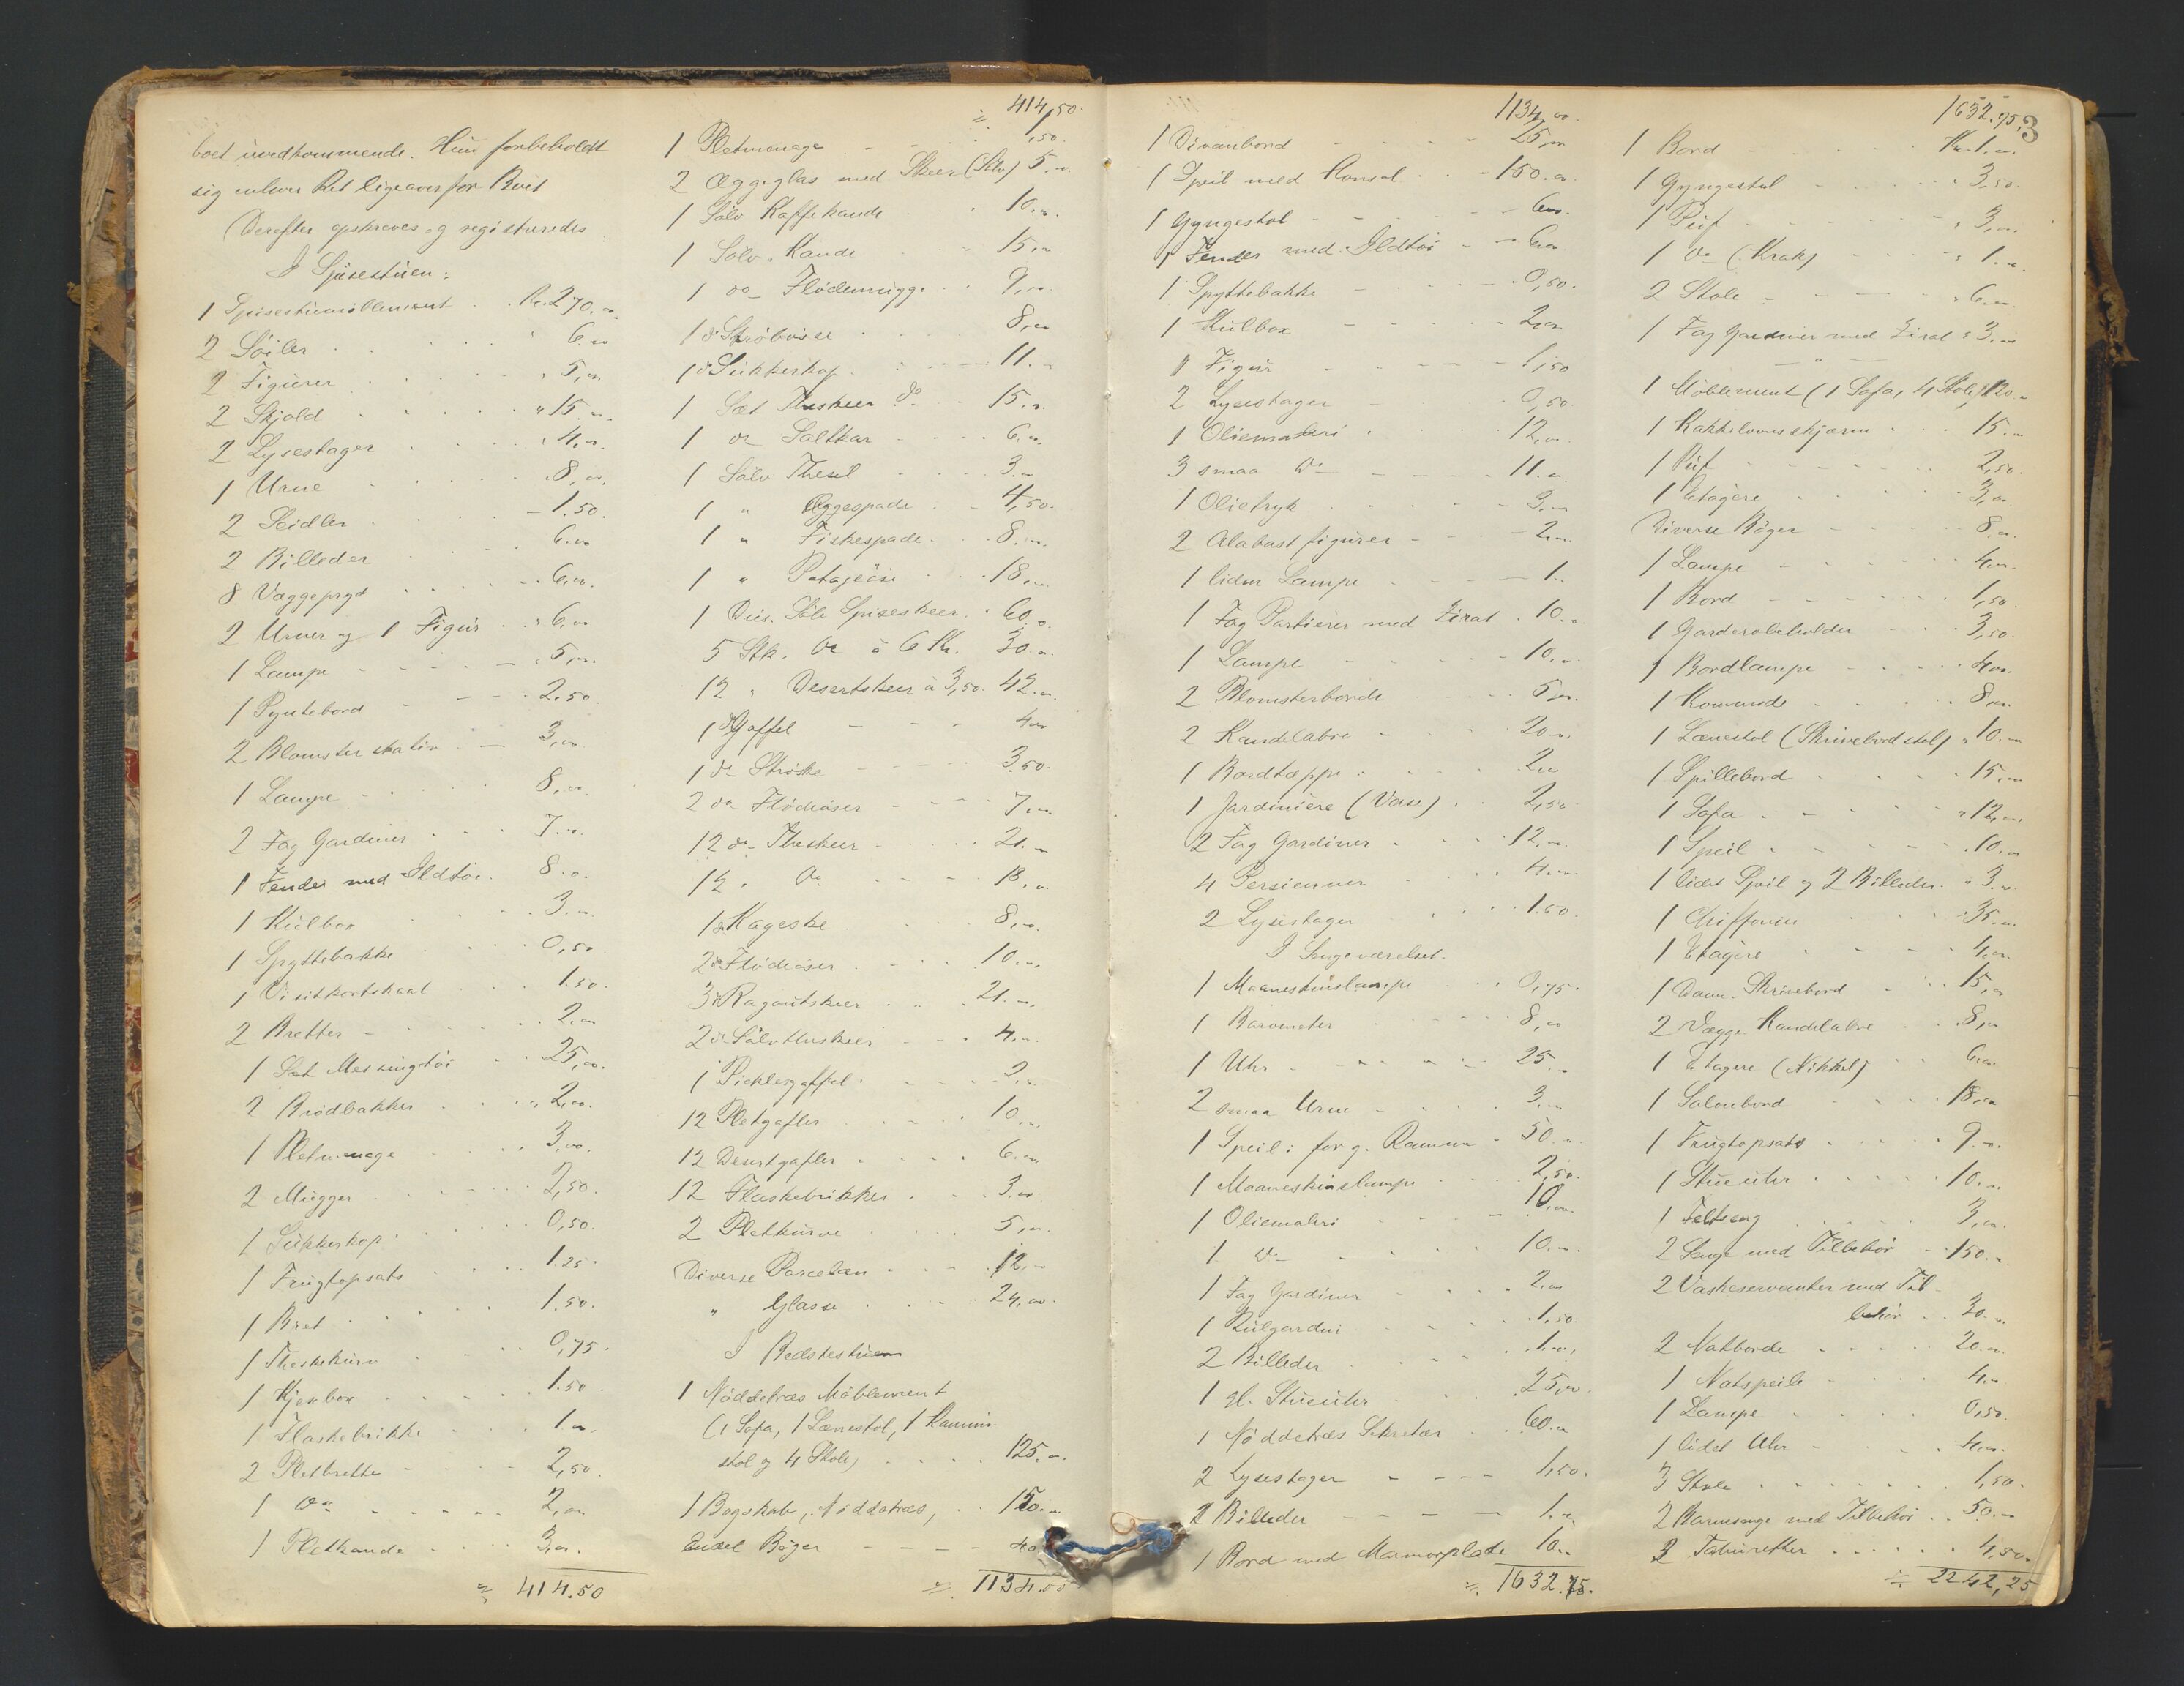 boet uvedkommende. Hun forbeholdt
sig enhver Ret ligeoverfor Boet
Derefter opskreves og registreredes
I Spisestuen:
1 Spisestuemöblement Kr. 270,00
2 Söiler 6.00
2 Figurer 5,00
2 Skjold " 15.00
2 Lysestager 4.00
1 Urne 8,00
2 Seidler 1.50.
2 Billeder 6.00
8 Væggepryd 6,00.
2 Urner og 1 Figur 6,00
1 Lampe 5,00.
1 Pyntebord 2.50.
2 Blomsterstativ 3,00
1 Lampe 8,00.
2 Fag Gardiner 7.00
1 Fender med Ildtöi. 8.00
1 Kulbox 3.00
1 Spyttebakke 0,50
1 Visitkortskaal 1.50.
2 Bretter 2.00
1 Sæt Messingtöi 25,00.
2 Brödbakker 2,00.
1 Pletmenage 3,00.
2 Mugger 2,50.
1 Sukkerkop 0,50.
1 Frugtopsats 1.25.
1 Bret 1.50.
1 Theskekurv 0,75.
1 Kjexbox 1.50
1 Flaskebrikke 1.00
2 Pletbrette 2,50.
1 Do 2,00
1 Pletkande 3,00.
= 414.50
= 414,50.
1 Pletmenage 1,50
2 Æggeglas med Skeer (Sölv) 5.00
1 Sölv Kaffekande 10.00
1 Sölv. Kande 15.00
1 do Flödemugge 9,00
1 do Ströbösse 8,00
1 do Sukkerkop 11.00
1 Sæt Theskeer do 15.00
1 do Saltkar 6.00
1 Sölv Thesil 3.00
1 " Æggespade 4,50.
1 " Fiskespade 8.00
1 " Potageöse 18,00
1 Dus. Sölv Spiseskeer 60,00
5 Stk. Do à 6 Kr. 30.00
12 " Desertskeer à 3,50. 42.00
1 do Gaffel 4.00
1 do Ströske 3.50.
2 do Flödeöser 7,00
12 do Theskeer 21.00
12 " Do 18,00
1 do Kageske 8,00
2 do Flödeöser 10.00
3 do Ragoutskeer 21.00
2 do Sölvtheskeer 4.00
1 Picklesgaffel 2.00
12 Pletgafler 10.00
12 Desertgafler 6.00
12 Flaskebrikker 3.00
2 Pletkurve 5,00
Diverse Porcelæn 12.00
" Glasse 24,00.
I Bedstestuen
1 Nöddetræs Möblement
(1 Sofa, 1 Lænestol, 1 Kamin
stol og 4 Stole) 125.00
1 Bogskab, Nöddetræs, 150.00
Endel Böger 40
= 1134.00
1134,00
1 Divanbord 25,00
1 Speil med Konsol 150.00
1 Gyngestol 6.00
1 Fender med Ildtöi 6.00
1 Spyttebakke 0,50.
1 Kulbox 2.00
1 Figur 1,50
2 Lysestager 0,50.
1 Oliemaleri 12,00
3 smaa Do 11.00
1 Oliotryk 3,00
2 Alabastfigurer 2.00
1 liden Lampe 1.00
1 Fag Portierer med Zirat 10.00
1 Lampe 10.00
2 Blomsterborde 5,00.
2 Kandelabre 20.00
1 Bordtæppe 2.00
1 Jardiniere (Vase) 2,50
2 Fag Gardiner 12,00
4 Persienner 4.00
2 Lysestager 1.50.
I Sengeværelset.
1 Maaneskinslampe 0,75.
1 Barometer 8,00
1 Uhr 25.00
2 smaa Urne 3.00
1 Speil i forg. Ramme 50.00
1 Maaneskinslampe 2,50.
1 Oliemaleri 10,00.
1 Do 10.00
1 Fag Gardiner 2,00
1 Rulgardin 1,50.
2 Billeder 1.00,
1 gl. Stueuhr 25,00.
1 Nöddetræs Sekretær 60.00
2 Lysestager 1,50.
2 Billeder 1.00
1 Bord med Marmorplade 10.00
= 1632.75.
1632.75. 3
1 Bord Kr. 1.00
1 Gyngestol 3,50.
1 Puf 3,00.
1 Do (Krak) 1.00
2 Stole 6.00
1 Fag Gardiner med Zirat 3,00
— " —
1 Möblement (1 Sofa, 4 Stole) 120.00
1 Kakkelovnsskjærm 15.00
1 Puf 2,50.
1 Etagere 3,00
Diverse Böger 8,00
1 Lampe 4,00.
1 Bord 1,50.
1 Garderobeholder 3,50.
1 Bordlampe 4.00
1 Kommode 8,00.
1 Lænestol (Skrivebordstol) " 10.00
1 Spillebord 15,00
1 Sofa " 12,00
1 Speil 10.00
1 lidet Speil og 2 Billeder. " 3.00
1 Chiffoniere 35.00
1 Etagere 4,00.
1 Dame-Skrivebord 15,00
2 Vægge Kandelabre 8,00
1 Etagere (Nikkel) 6.00
1 Salonbord 18,00
1 Frugtopsats 9.00
1 Stueuhr 10.00
1 Feltseng 3,00.
2 Senge med Tilbehör 150.00
2 Vaskeservanter med Til-
behör 30.00
2 Natborde 20.00
1 Natspeile 4.00
1 Lampe 0,50.
1 lidet Uhr 4.00
3 Stole 1,50.
2 Barnesenge med Tilbehör 50.00
3 Taburetter 4,50.
= 2242,25